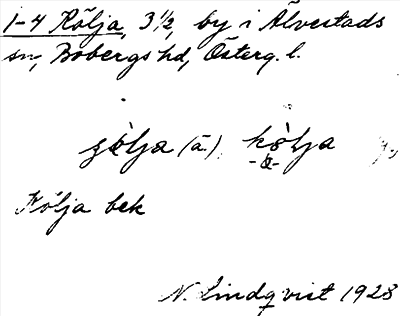 1-4 Kölja, 3 1/2, by i Älvestads
sn, Bobergs hd, Österg. l.
kölja
-a-
Kölja bek
N. Lindqvist 1928